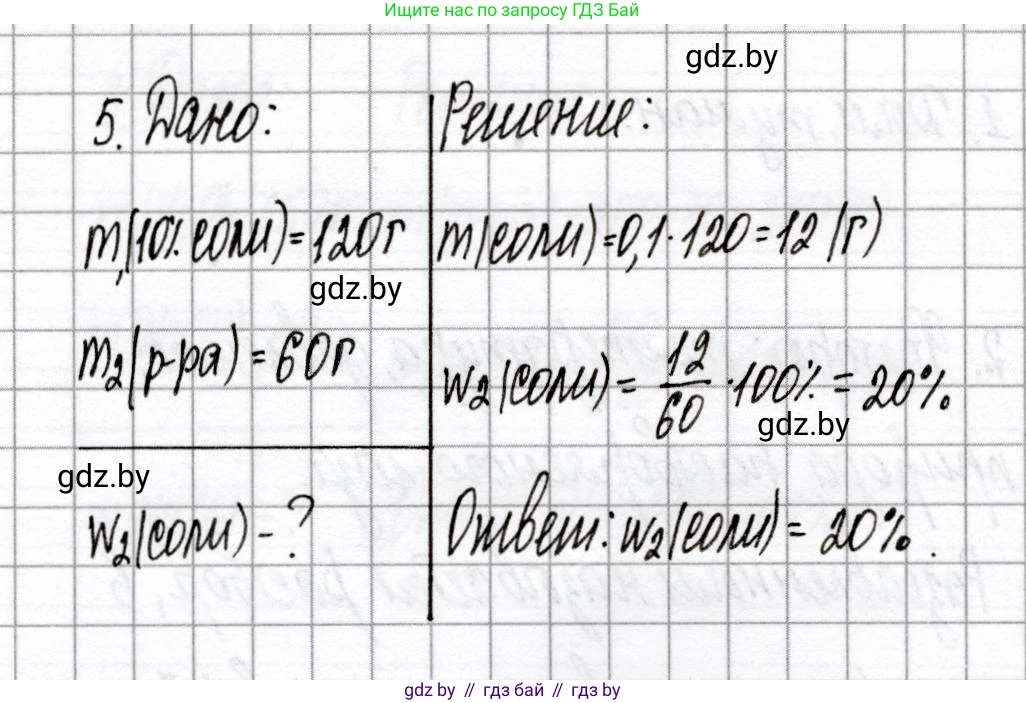 Ищите нас по запросу ГДЗ Бай
gdz.by
5. Дано:
Решение:
m₁(10% соли) = 120 г
m(соли) = 0,1 · 120 = 12 (г)
gdz.by
m₂(р-ра) = 60 г
w₂(соли) = 12/60 · 100% = 20%
gdz.by
gdz.by
w₂(соли) - ?
Ответ: w₂(соли) = 20%.
gdz.by // гдз бай // gdz.by